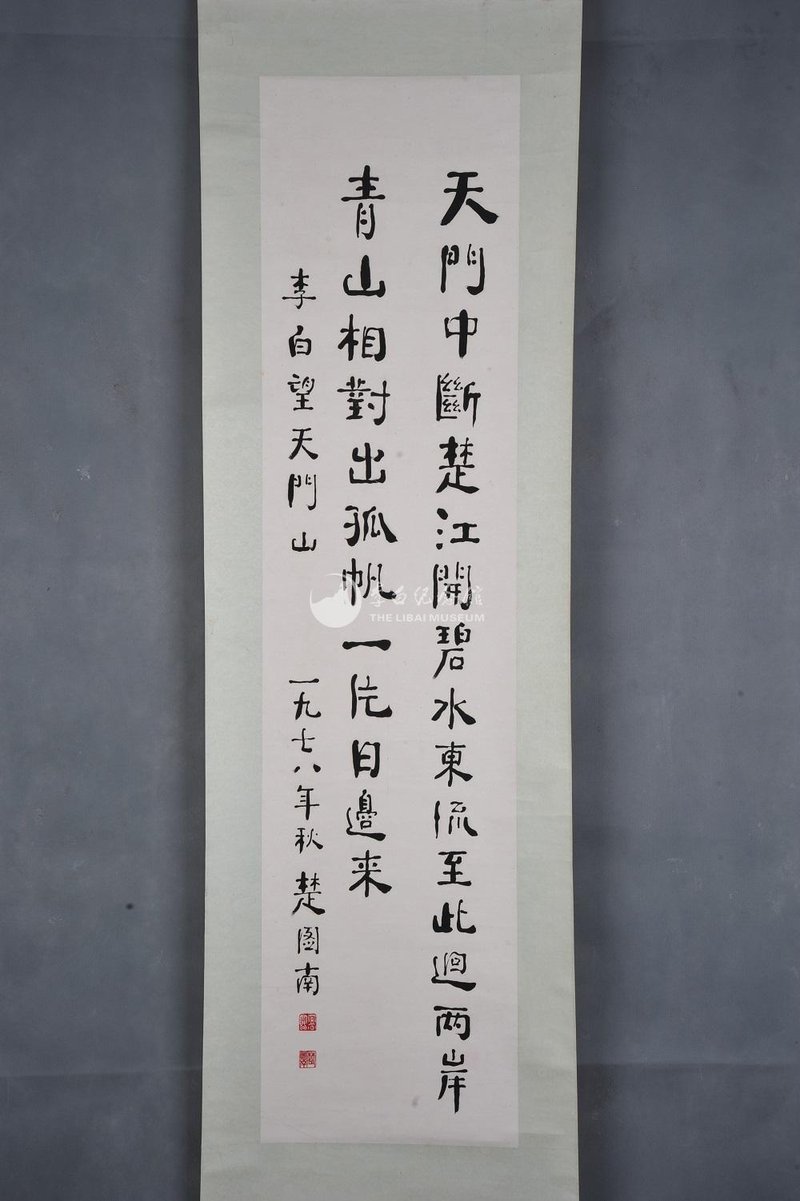 天門中斷楚江開碧水東流至此迴两岸
青山相對出孤帆一片日邊来
李白望天門山 一九七八年秋 楚圖南
李白纪念館
THE LIBAI MUSEUM